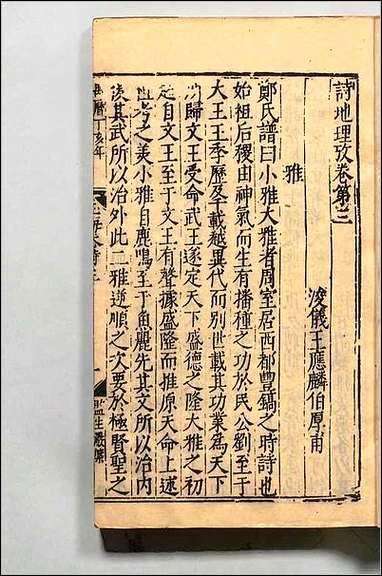 詩地理攷卷第三
浚儀王應麟伯厚甫
雅
鄭氏譜曰小雅大雅者周室居西都豐鎬之時詩也
始祖后稷由神氣而生有播種之功於民公劉至于
大王王季歷及千載越異代而別世載其功業為天下
所歸文王受命武王遂定天下盛德之隆大雅之初
起自文王至于文王有聲據盛隆而推原天命上述
祖考之美小雅自鹿鳴至于魚麗先其文所以治內
後其武所以治外此二雅逆順之次要於極賢聖之
萬曆丁亥年
監生